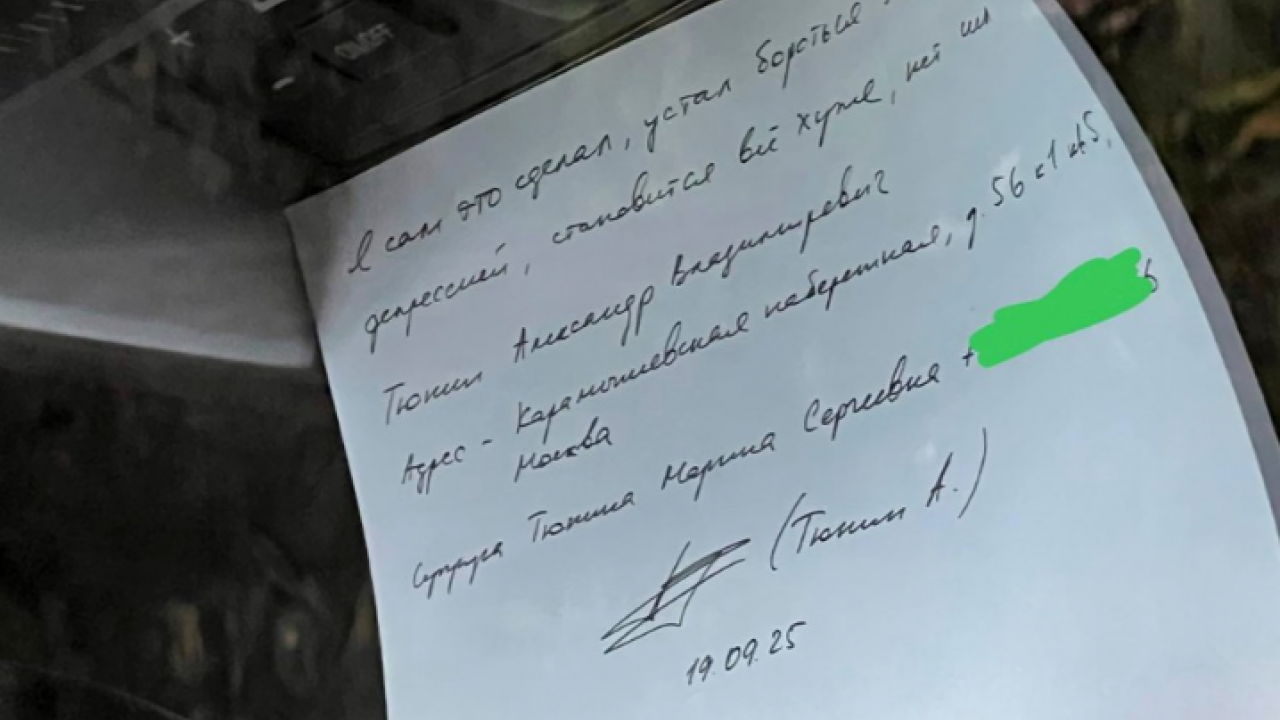 ON/OFF
Я сам это сделал, устал бороться
депрессией, становится всё хуже, нет
Тюнин Александр Владимирович
Адрес - Карамышевская набережная, д. 56 к1 кв5,
Москва
супруга Тюнина Марина Сергеевна +
(Тюнин А.)
19.09.25